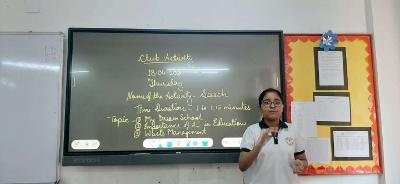 Club Activity
Thursday
Name of the Activity - Speech
Time Duration - 1 to 1:15 minutes
Topic ① My Dream School
② Importance of in Education
③ Waste Management